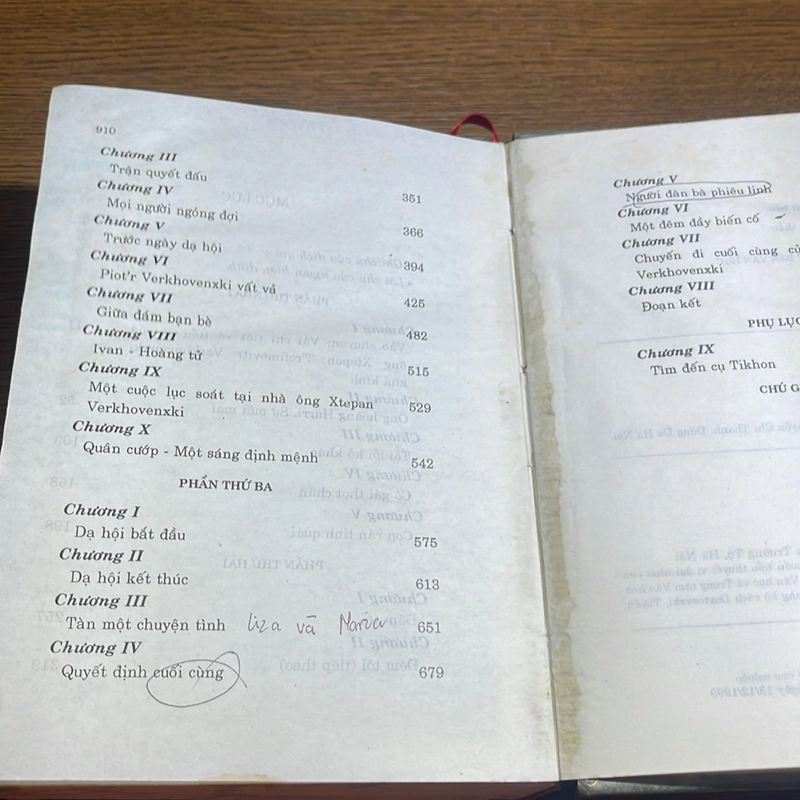 910
Chương III
Trận quyết đấu 351
Chương IV
Mọi người ngóng đợi 366
Chương V
Trước ngày dạ hội 394
Chương VI
Piot'r Verkhovenxki vất vả 425
Chương VII
Giữa đám bạn bè 482
Chương VIII
Ivan - Hoàng tử 515
Chương IX
Một cuộc lục soát tại nhà ông Xtepan
Verkhovenxki 529
Chương X
Quân cướp - Một sáng định mệnh 542
PHẦN THỨ BA
Chương I
Dạ hội bắt đầu 575
Chương II
Dạ hội kết thúc 613
Chương III
Tàn một chuyện tình Liza và Maria 651
Chương IV
Quyết định cuối cùng 679
Chương V
Người đàn bà phiêu linh
Chương VI
Một đêm đầy biến cố
Chương VII
Chuyến đi cuối cùng củ
Verkhovenxki
Chương VIII
Đoạn kết
PHỤ LỤC
Chương IX
Tìm đến cụ Tikhon
CHÚ G